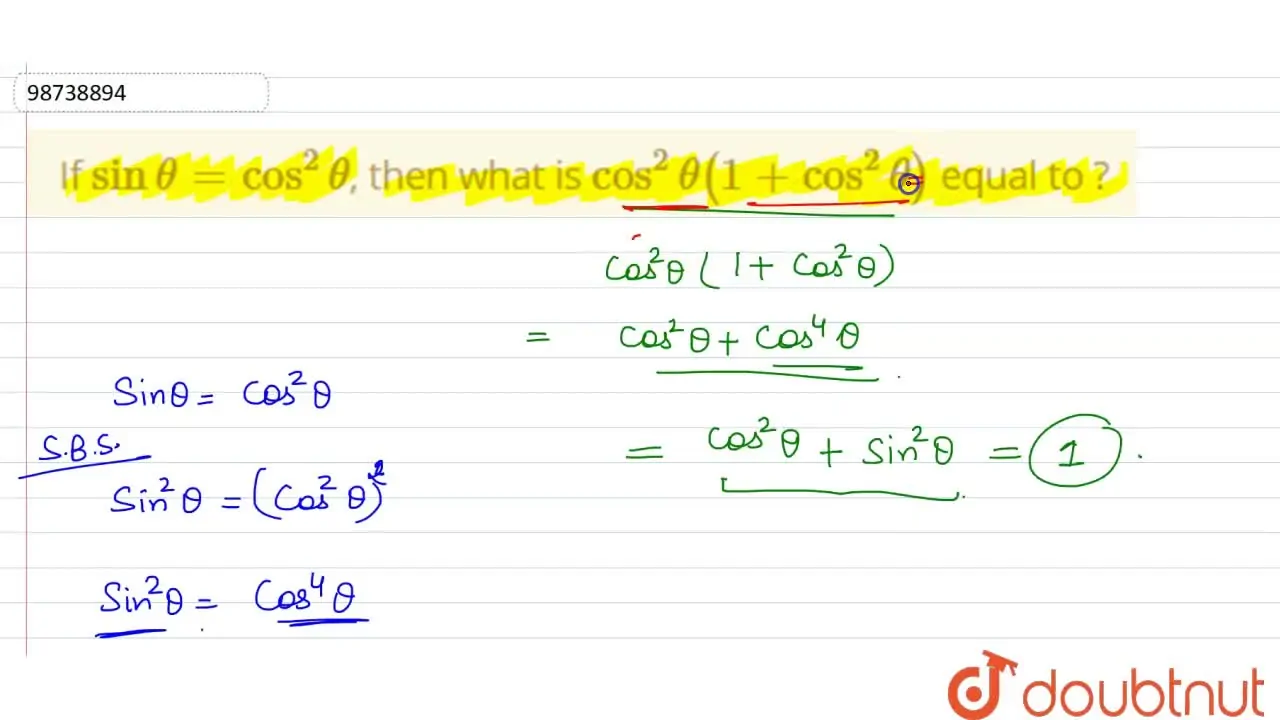 98738894
If sin θ = cos² θ, then what is cos² θ(1 + cos² θ) equal to ?
Cos²θ ( 1 + Cos²θ)
= Cos²θ + Cos⁴θ
= Cos²θ + Sin²θ = 1.
Sinθ = Cos²θ
S.B.S.
Sin²θ = (Cos²θ)²
Sin²θ = Cos⁴θ
doubtnut